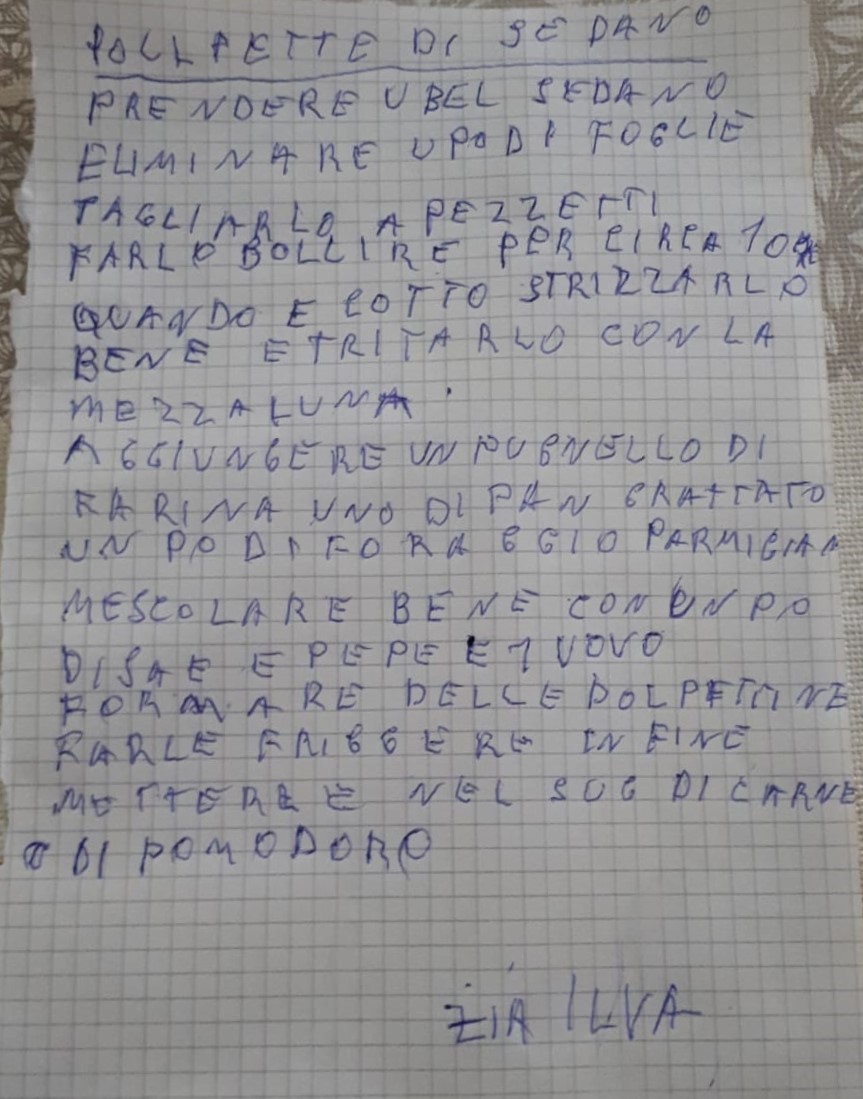 POLLPETTE DI SEDANO
PRENDERE U BEL SEDANO
ELIMINARE U PO DI FOGLIE
TAGLIARLO A PEZZETTI
FARLO BOLLIRE PER CIRCA 10
QUANDO E COTTO STRIZZARLO
BENE E TRITARLO CON LA
MEZZALUNA.
AGGIUNGERE UN PUGNELLO DI
FARINA UNO DI PAN GRATTATO
UN PO DI FORAGGIO PARMIGIAN
MESCOLARE BENE CON UN PO
DI SAE E PEPE E 1 UOVO
FORMARE DELLE POLPETTINE
FARLE FRIGGERE INFINE
METTERLE NEL SUG DI CARNE
O DI POMODORO
ZIA ILVA